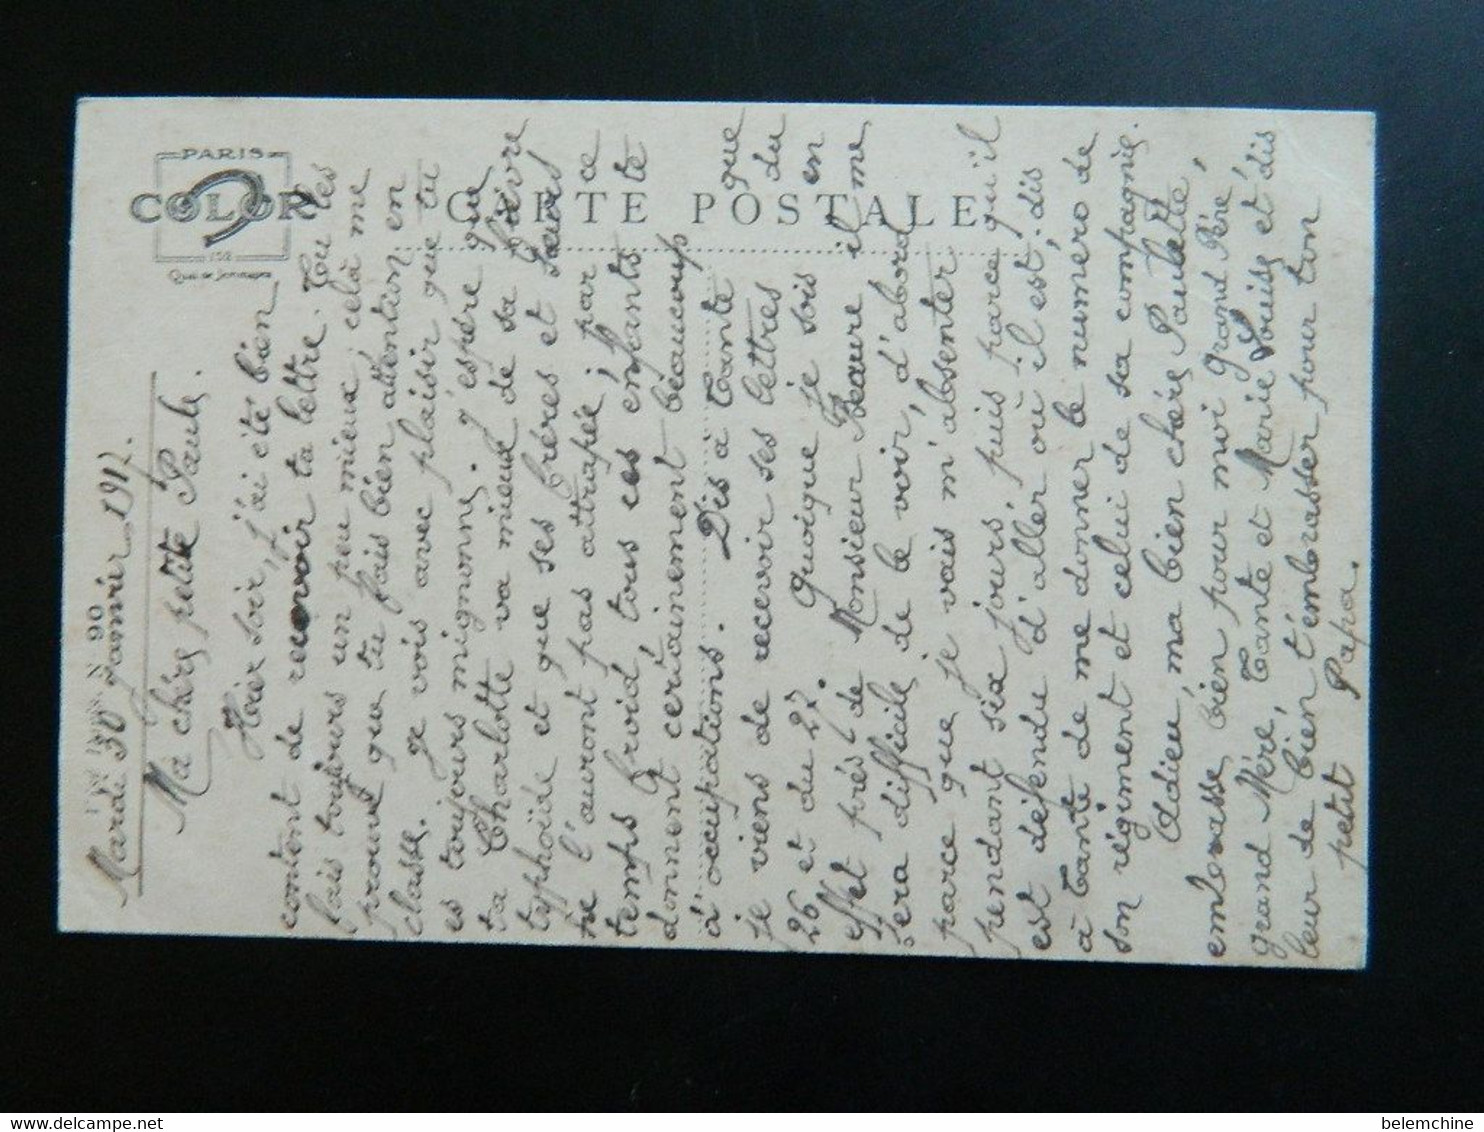 PARIS
COLOR
152
Quai de Jemmapes
CARTE POSTALE
N 90
Mardi 30 Janvier 1917.
Ma chère petite Paule.
Hier soir, j'ai été bien
content de recevoir ta lettre. Tu les
fais toujours un peu mieux; celà me
prouve que tu fais bien attention en
classe. Je vois avec plaisir que tu
es toujours mignonne. J'espère que
ta Charlotte va mieux de sa fièvre
typhoïde et que ses frères et sœurs
ne l'auront pas attrapée; par ce
temps froid, tous ces enfants te
donnent certainement beaucoup
d'occupations. Dis à Tante que
je viens de recevoir ses lettres du
26 et du 27. Quoique je sois en
effet près de Monsieur Beaure il me
sera difficile de le voir, d'abord
parce que je vais m'absenter
pendant six jours, puis parce qu'il
est défendu d'aller où il est; dis
à Tante de me donner le numéro de
son régiment et celui de sa compagnie.
Adieu, ma bien chère Paulette
embrasse bien pour moi grand Père,
grand Mère, Tante et Marie Louise et dis
leur de bien t'embrasser pour ton
petit Papa.
belemchine